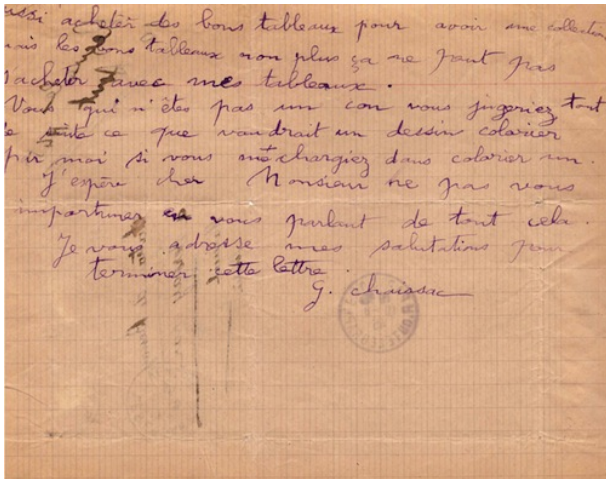 ussi acheter des bons tableaux pour avoir une collection
mais les bons tableaux non plus ça ne peut pas
s'acheter avec mes tableaux.
Vous qui n'êtes pas un con vous jugeriez tout
de suite ce que vaudrait un dessin colorier
par moi si vous me chargiez dans colorier un.
J'espère cher Monsieur ne pas vous
importuner en vous parlant de tout cela.
Je vous adresse mes salutations pour
terminer cette lettre.
G. Chaissac